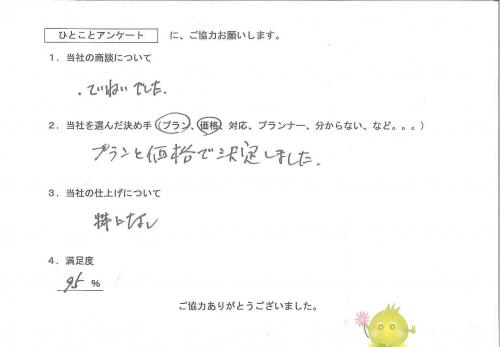 ひとことアンケート に、ご協力お願いします。
1．当社の商談について
．ていねいでした．
2．当社を選んだ決め手（プラン、価格、対応、プランナー、分からない、など。。。）
プランと価格で決定しました．
3．当社の仕上げについて
特になし
4．満足度
95 %
ご協力ありがとうございました。